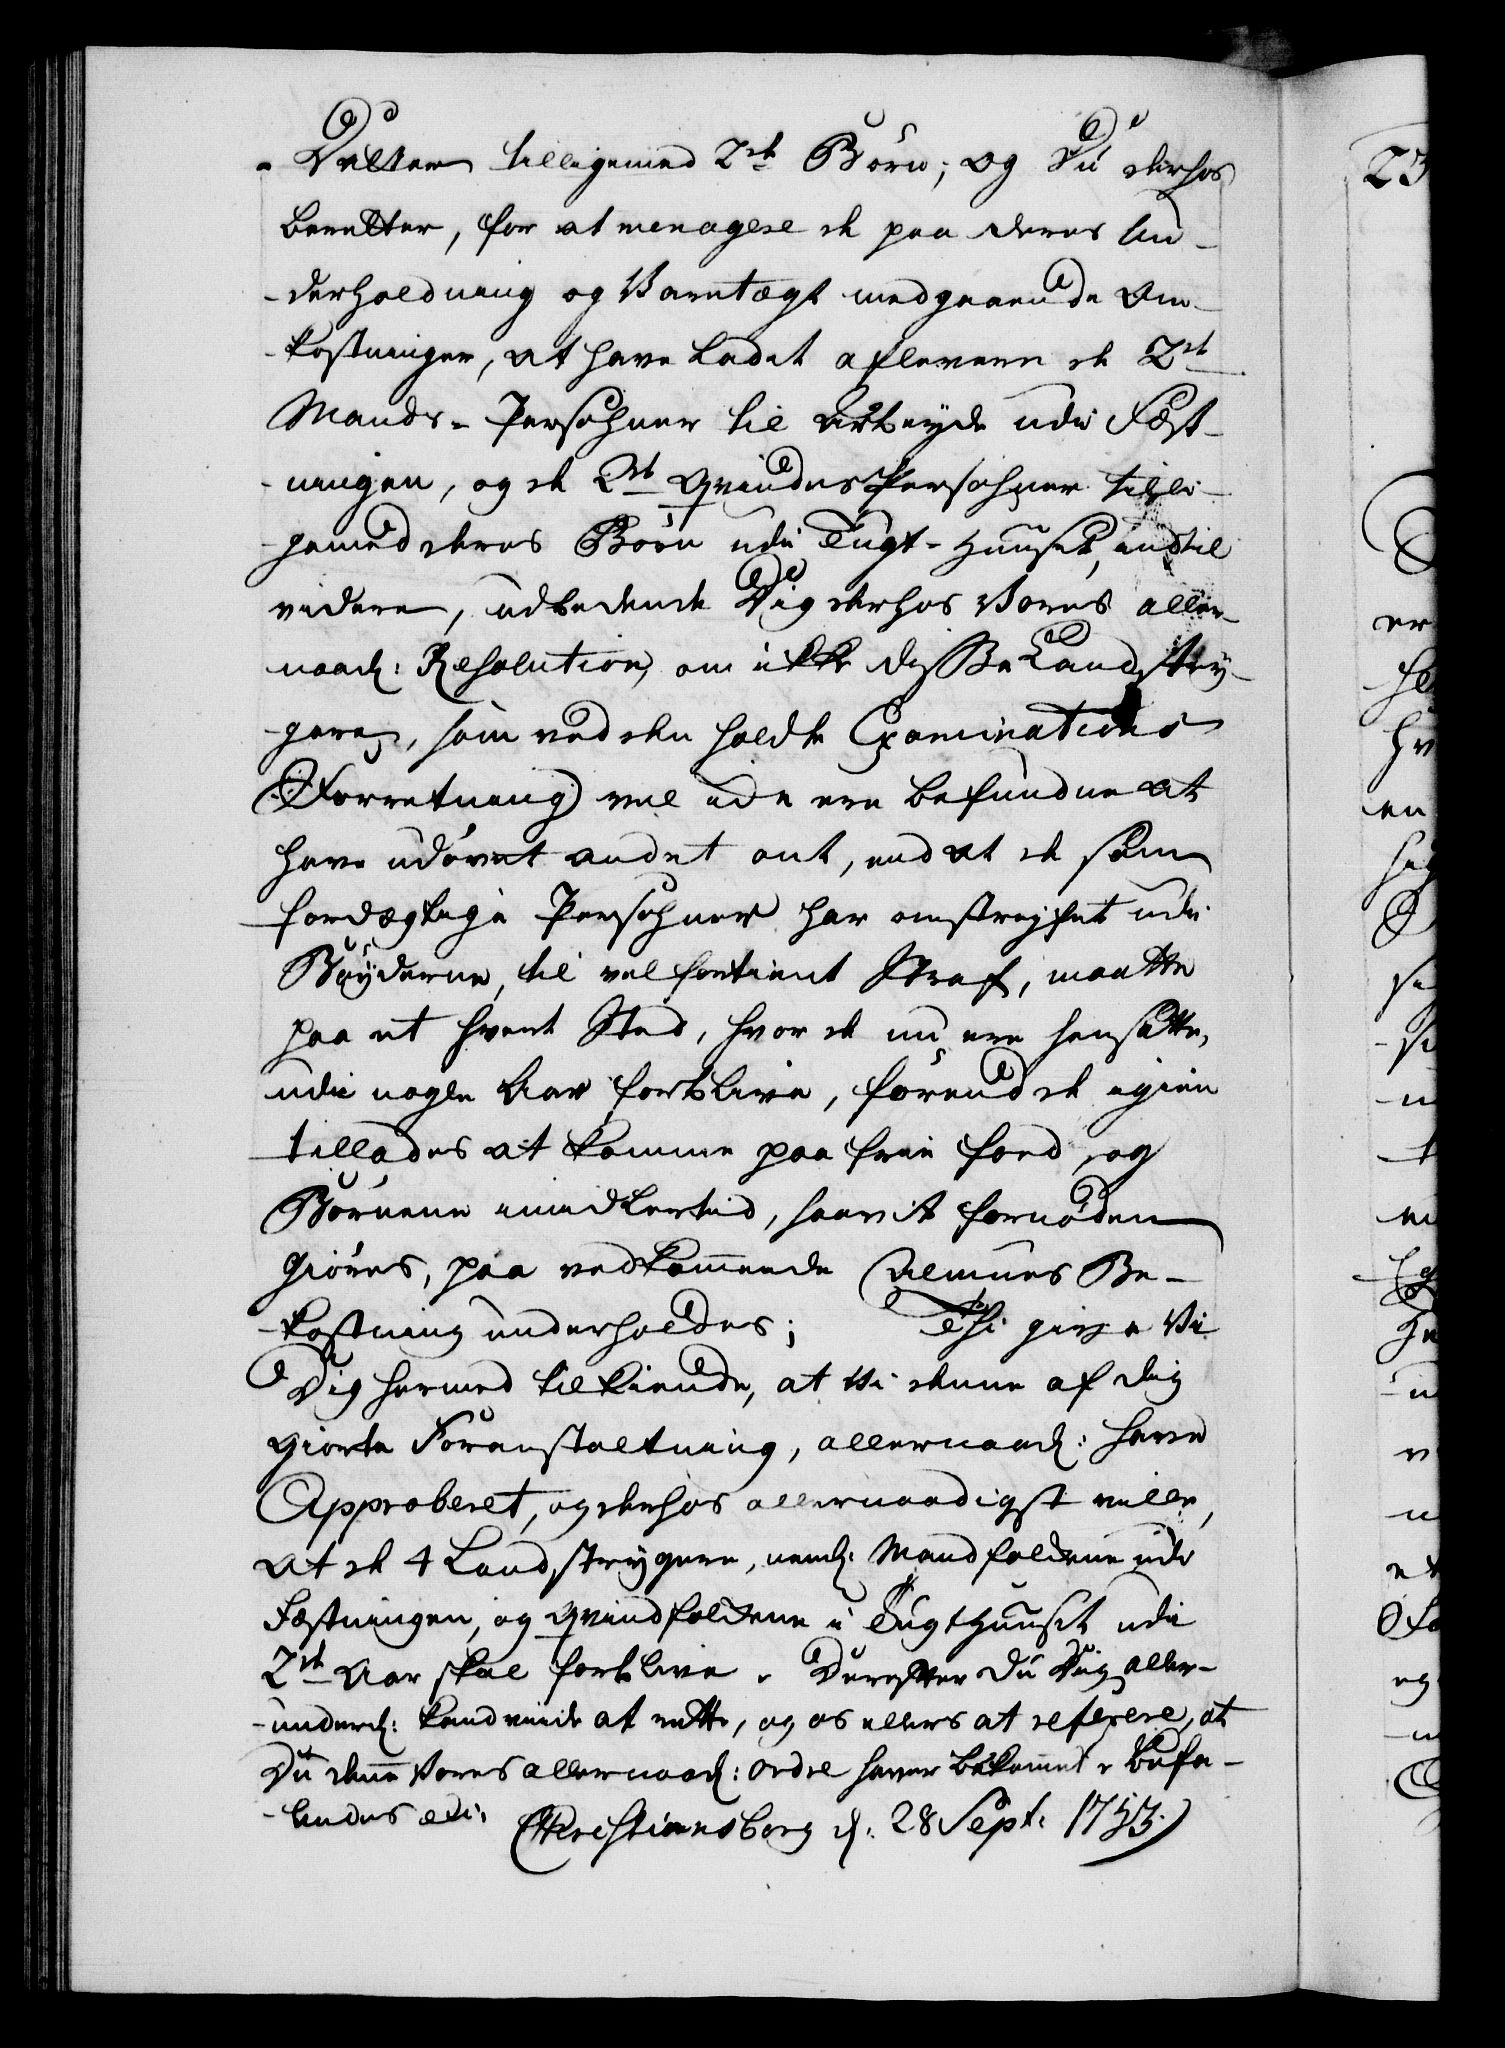 Datter tilligemed 2de Börn; og Du derhos
beretter, for at menagere de paa deres Un-
-derholdning og Varetægt medgaaende Om-
-kostninger, at have ladet aflevere de 2de
Mands-Persohner til Arbeyde udi Fæst-
-ningen, og de 2de Qvindes Persohner tilli-
-gemed deres Börn udi Tugt-Huuset, indtil
videre, udbedende Dig derhos Vores aller-
naad: Resolution, om ikke disse Landstry-
-gere, som ved den holdte Examinations
Forretning vel icke ere befundne at
have udövet andet ont, end at de som
fordægtige Persohner har omstrejfet udi
Bøyderne, til velfortient Straf, maatte
paa et hvert Sted, hvor de nu ere hensatte,
udi nogle Aar forblive, förend de igien
tillades at komme paa frie Foed, og
Börnene imidlertid, saavit fornöden
giöres, paa vedkommende Almues Be-
-kostning underholdes; Thi give Vi
Dig hermed tilkiende, at Vi denne af dig
giorte Foranstaltning, allernaad: have
Approberet, og derhos allernaadigst ville,
at de 4 Landstrygere, neml: Mandfolkene udi
Fæstningen, og Qvindfolkene i Tugthuuset udi
2de Aar skal forblive. Derefter Du Dig aller-
-underd: kand viide at rette, og os ellers at referere, at
Du denne Vores allernaad: Ordre haver bekommet. Befa-
-lendes etc: Christiansborg d: 28 Sept: 1753.